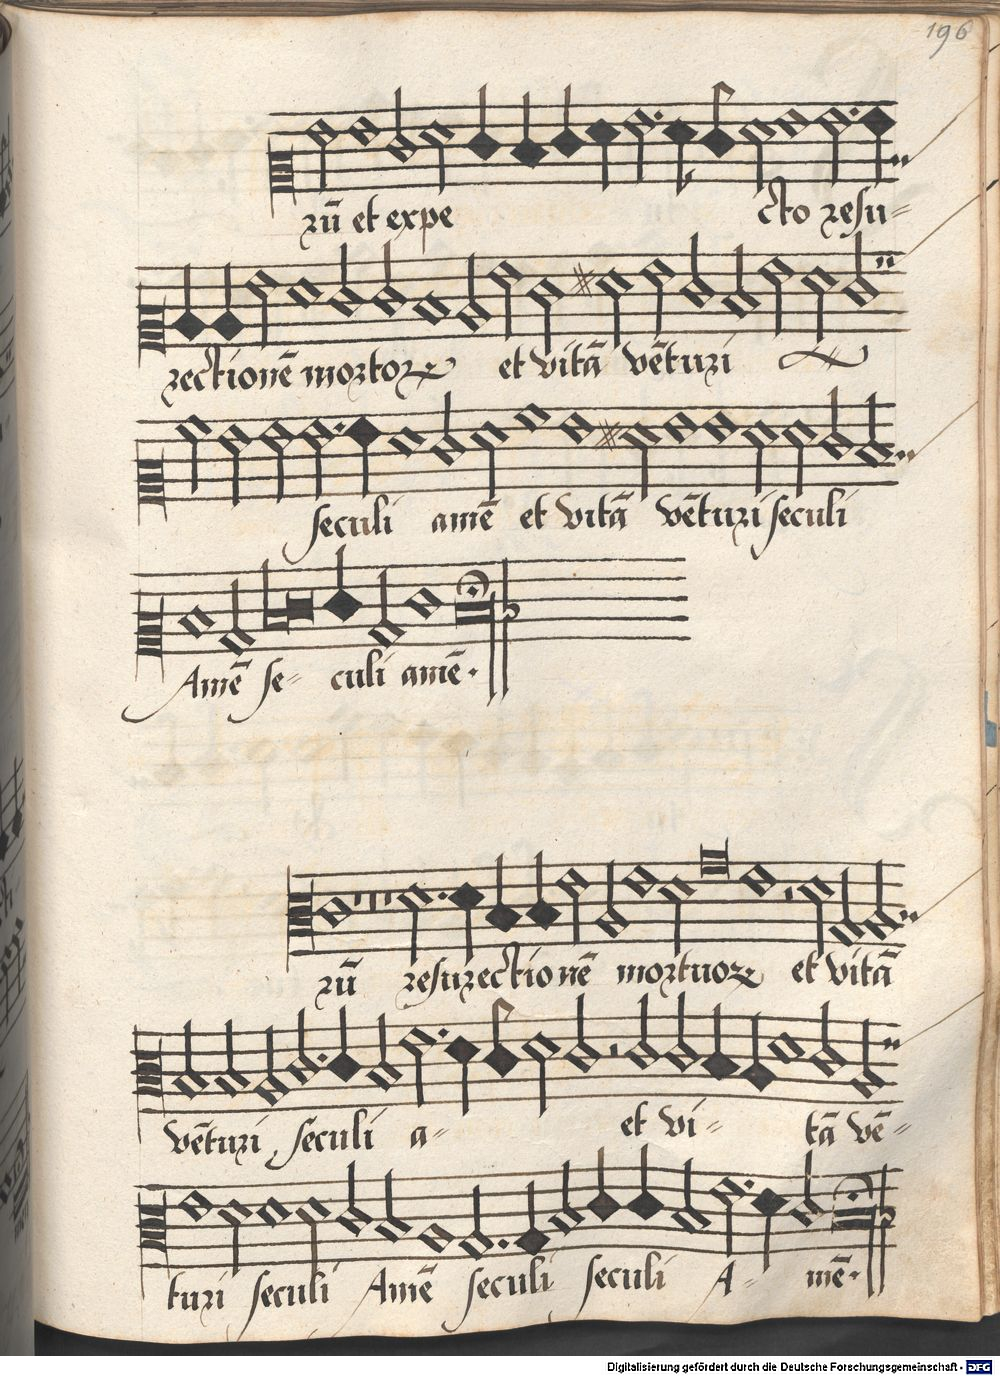 196
rū et expe cto resu=
rectionē mortoꝝ et vitā vēturi
seculi amē et vitā vēturi seculi
Amē se= culi amē.
rū resurectionē mortuoꝝ et vitā
vēturi seculi a= et vi= tā vē=
turi seculi Amē seculi seculi A= mē.
Digitalisierung gefördert durch die Deutsche Forschungsgemeinschaft - DFG